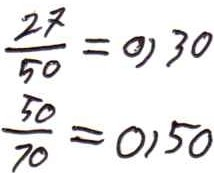 27/50 = 0,30
50/70 = 0,50